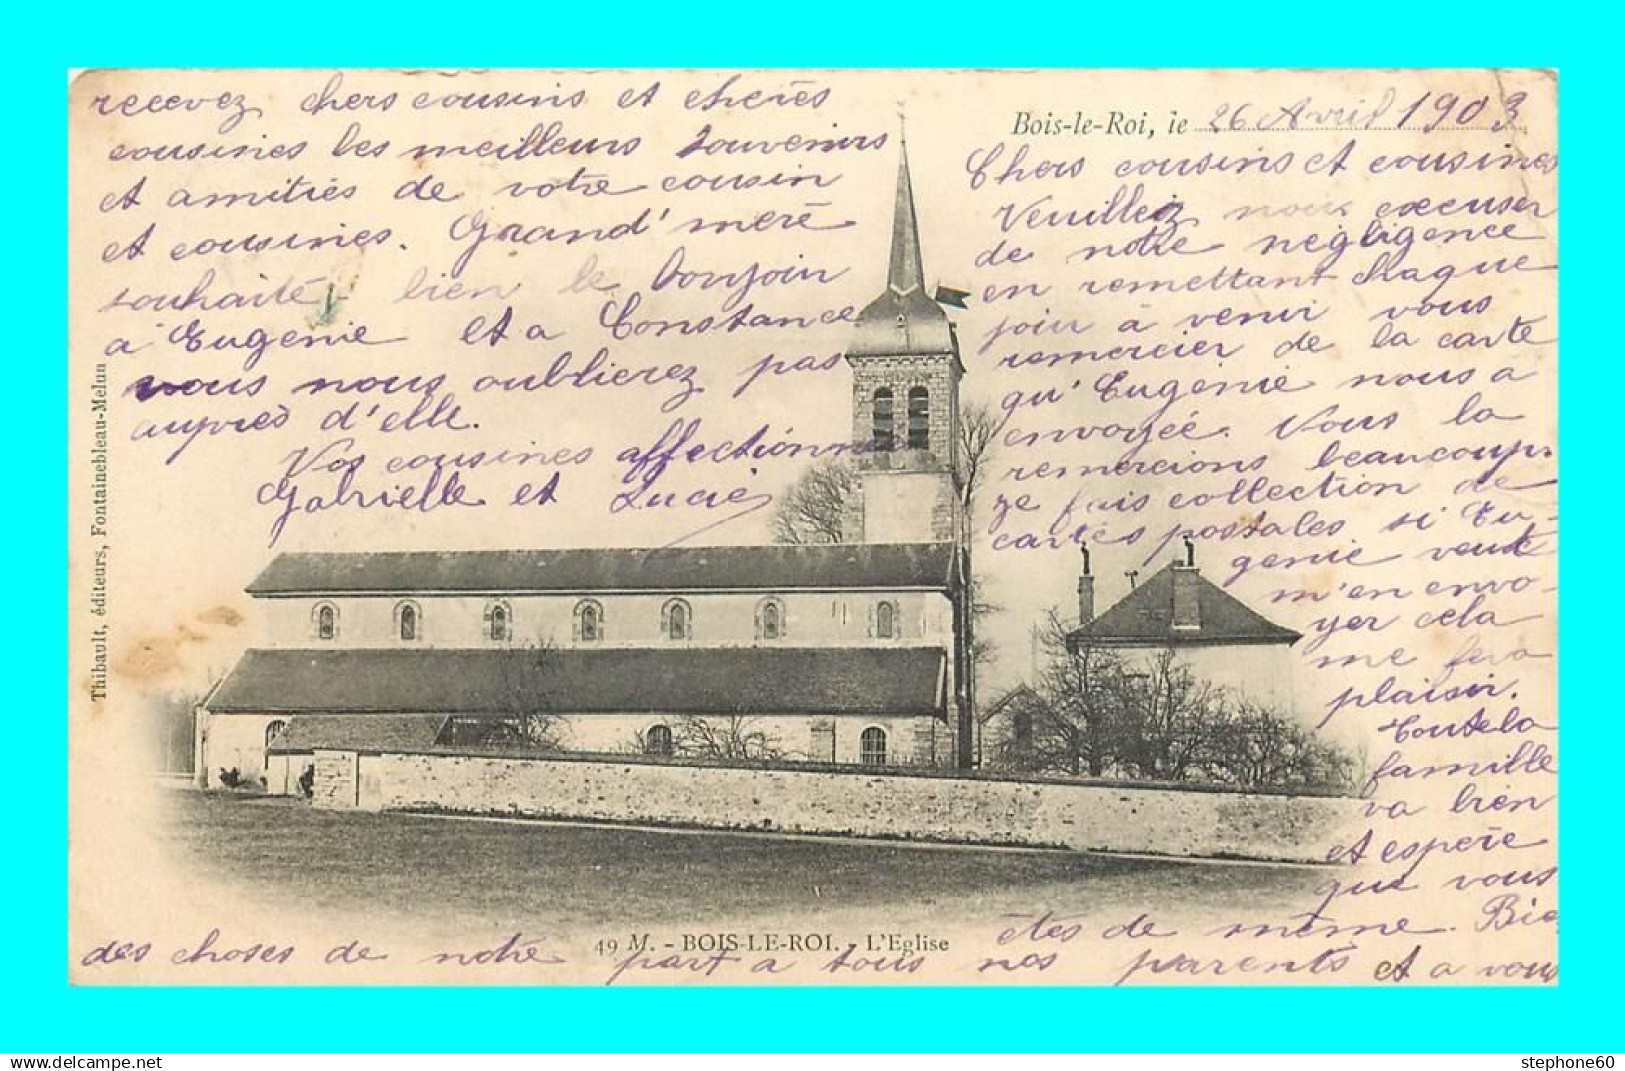 Bois-le-Roi, le 26 Avril 1903
Chers cousins et cousines
Veuillez nous excuser
de notre négligence
en remettant chaque
jour a venir vous
remercier de la carte
qu'Eugénie nous a
envoyée. Vous la
remercions beaucoup
je fais collection de
cartes postales si Eu-
genie veut
m'en envo-
yer cela
me fera
plaisir.
Toute la
famille
va bien
et espère
que vous
etes de même. Bie
des choses de notre part a tous nos parents et a vous
recevez chers cousins et chères
cousines les meilleurs souvenirs
et amitiés de votre cousin
et cousines. Grand'mère
souhaite bien le bonjoin
a Eugenie et a Constance
vous nous oublierez pas
auprès d'elle.
Vos cousines affectionnées
Gabrielle et Lucie
Thibault, éditeurs, Fontainebleau-Melun
49 M. - BOIS-LE-ROI. - L'Eglise
www.delcampe.net
stephone60